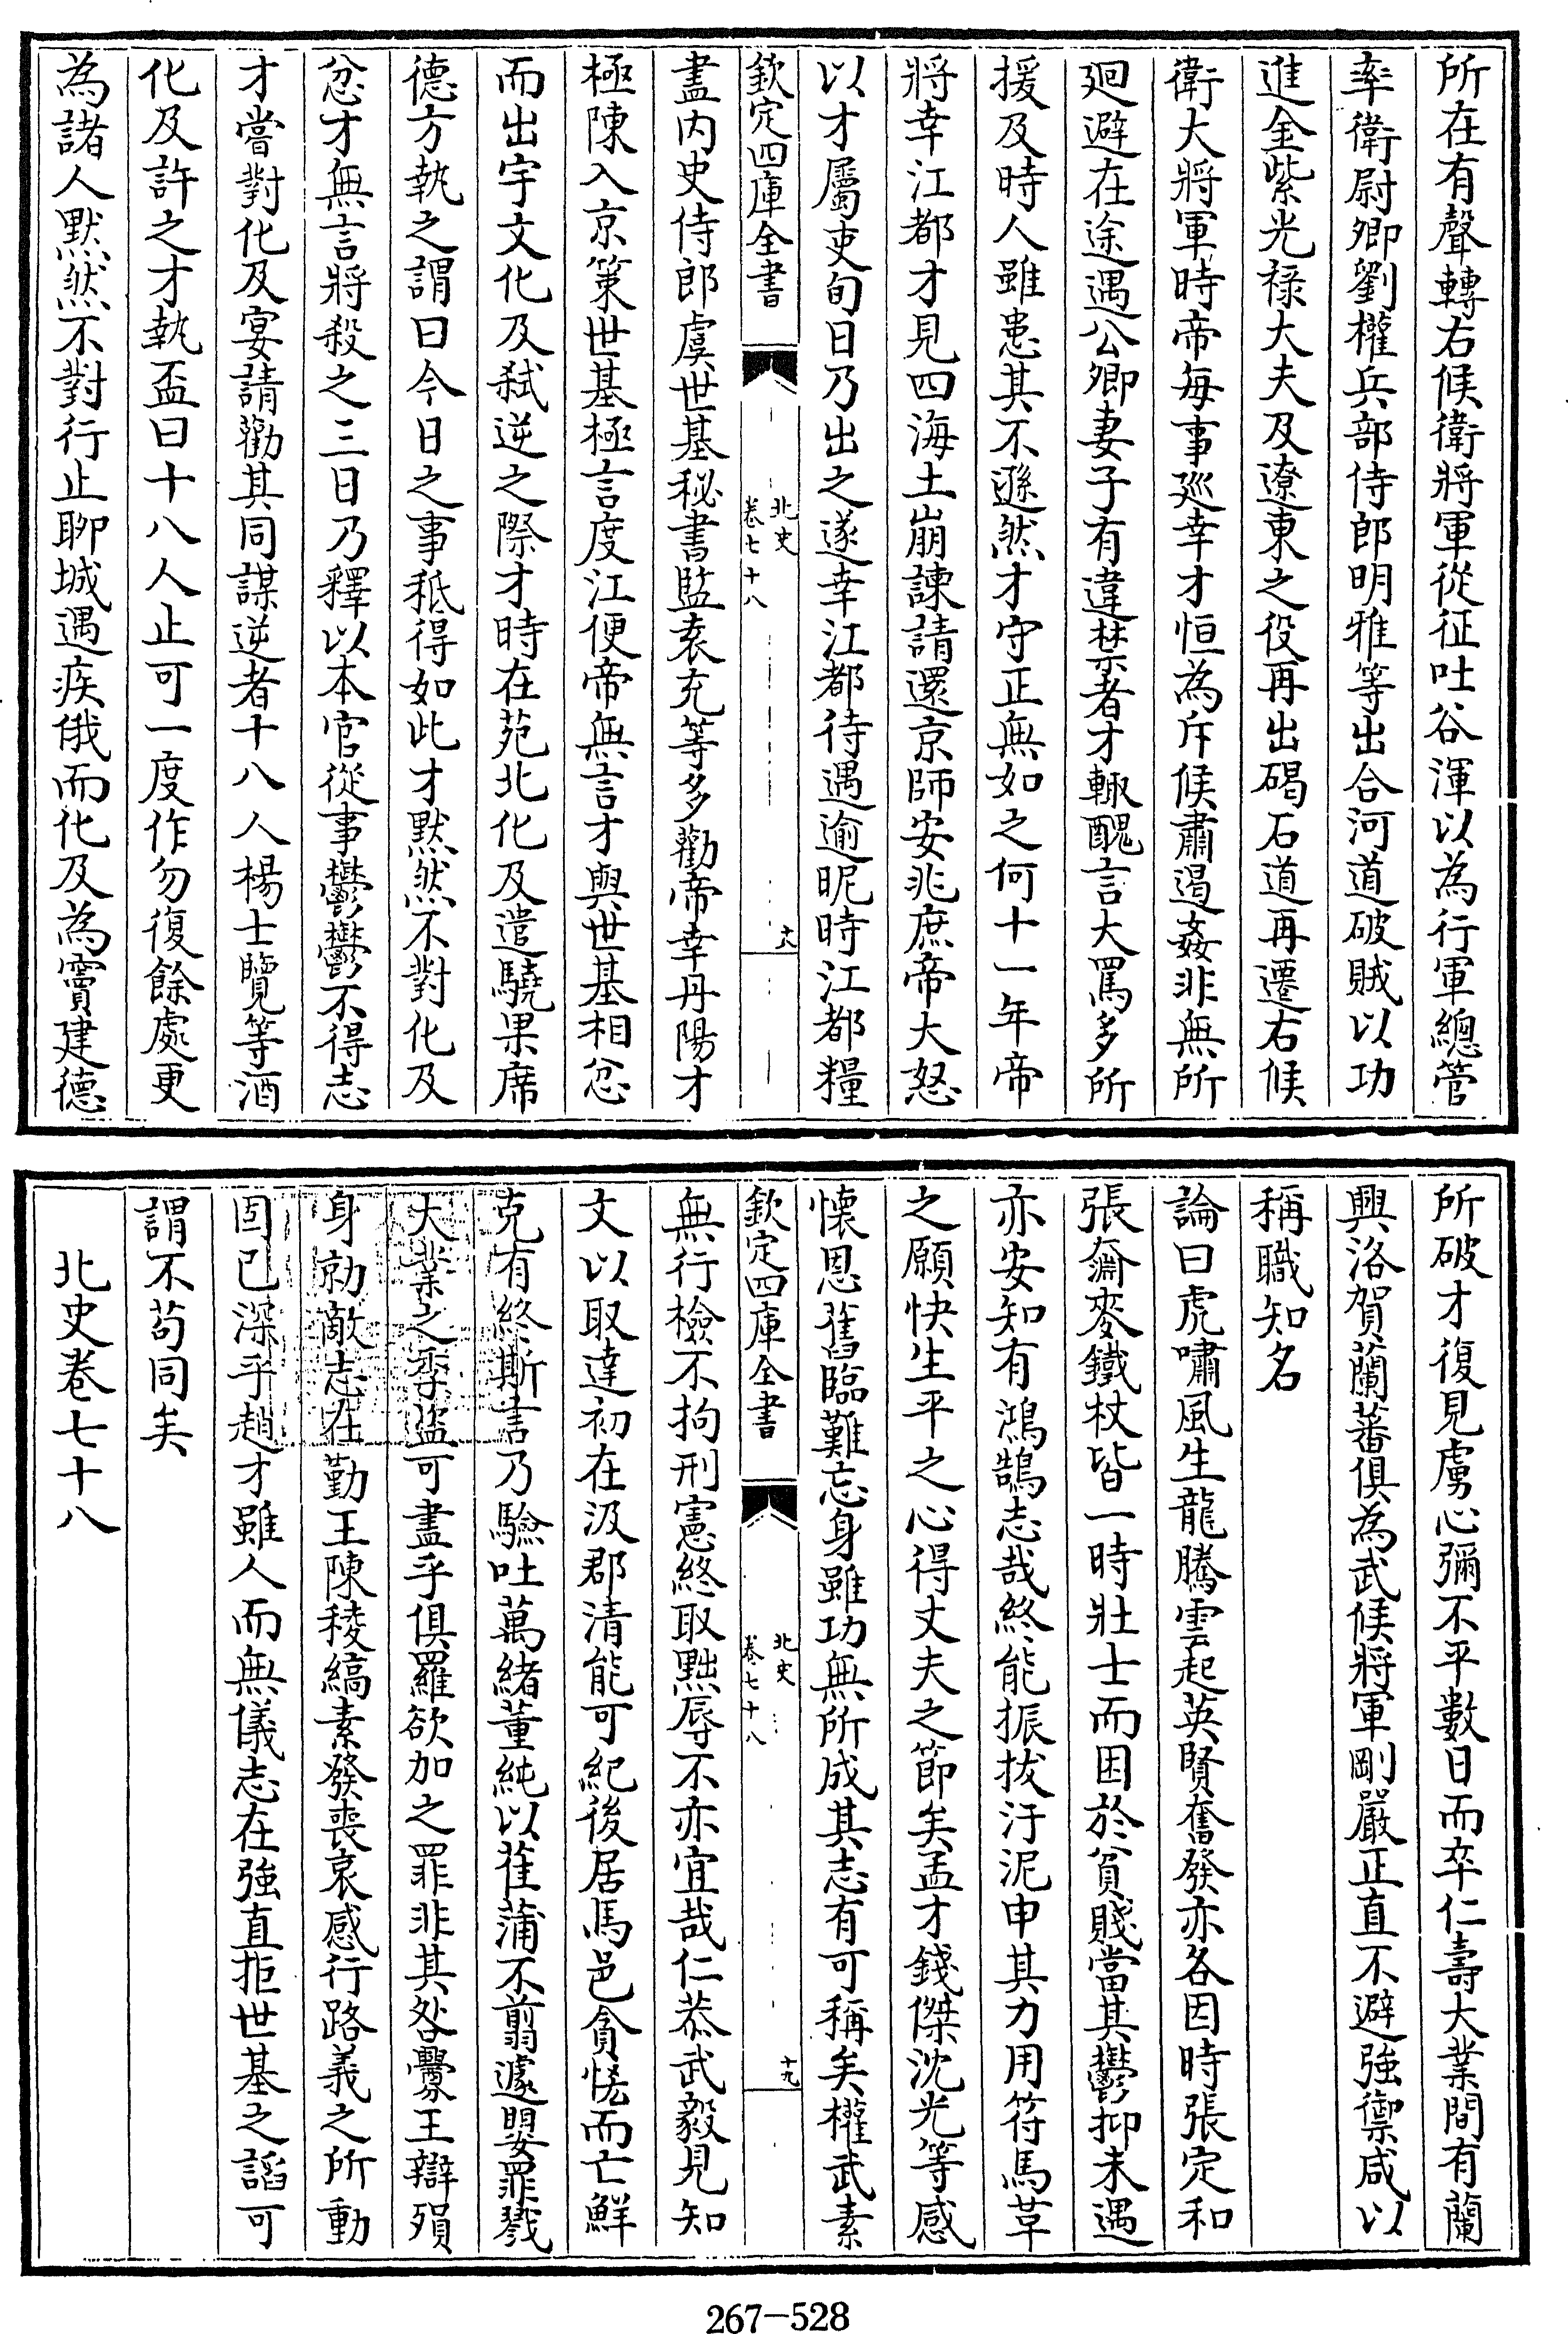 所在有聲轉右候衛將軍從征吐谷渾以為行軍總管
率衛尉卿劉權兵部侍郎明雅等出合河道破賊以功
進金紫光祿大夫及遼東之役再出碣石道再遷右候
衛大將軍時帝每事巡幸才恒為斥候肅遏姦非無所
迴避在途遇公卿妻子有違禁者才輙醜言大罵多所
援及時人雖患其不遜然才守正無如之何十一年帝
將幸江都才見四海土崩諫請還京師安兆庶帝大怒
以才屬吏旬日乃出之遂幸江都待遇逾昵時江都糧
欽定四庫全書
北史
卷七十八
十八
盡内史侍郎虞世基秘書監袁充等多勸帝幸丹陽才
極陳入京策世基極言度江便帝無言才與世基相忿
而出宇文化及弑逆之際才時在苑北化及遣驍果席
德方執之謂曰今日之事秪得如此才默然不對化及
忿才無言將殺之三日乃釋以本官從事鬱鬱不得志
才嘗對化及宴請勸其同謀逆者十八人楊士覽等酒
化及許之才執盃曰十八人止可一度作勿復餘處更
為諸人默然不對行止聊城遇疾俄而化及為竇建德
所破才復見虜心彌不平數日而卒仁壽大業間有蘭
興洛賀蘭蕃俱為武候將軍剛嚴正直不避強禦咸以
稱職知名
論曰虎嘯風生龍騰雲起英賢奮發亦各因時張定和
張奫麥鐵杖皆一時壯士而困於貧賤當其鬱抑未遇
亦安知有鴻鵠志哉終能振拔汙泥申其力用符馬革
之願快生平之心得丈夫之節矣孟才錢傑沈光等感
懷恩舊臨難忘身雖功無所成其志有可稱矣權武素
欽定四庫全書
北史
卷七十八
十九
無行檢不拘刑憲終取黜辱不亦宜哉仁恭武毅見知
文以取達初在汲郡清能可紀後居馬邑貪恡而亡鮮
克有終斯言乃驗吐萬緒董純以萑蒲不翦遽嬰罪戮
大業之季盜可盡乎俱羅欲加之罪非其咎釁王辯殞
身勍敵志在勤王陳稜縞素發喪哀感行路義之所動
固已深乎趙才雖人而無儀志在強直拒世基之諂可
謂不苟同矣
北史卷七十八
267-528